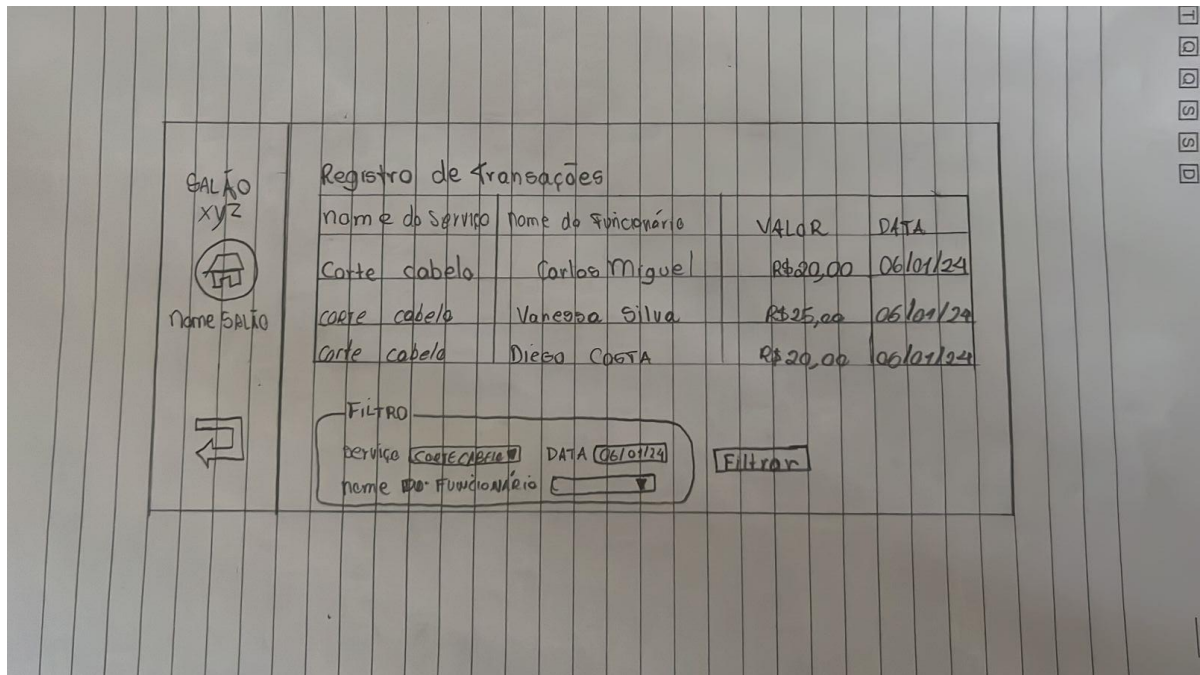 T
Q
Q
S
S
D
SALÃO
XYZ
nome SALÃO
Registro de Transações
nome do Serviço nome do Funcionário VALOR DATA
Corte cabelo Carlos Miguel R$20,00 06/01/24
corte cabelo Vanessa Silva R$25,00 06/01/24
Corte cabelo Diego COSTA R$20,00 06/01/24
FILTRO
serviço CORTE CABELO DATA 06/01/24
nome DO FUNCIONÁRIO
Filtrar